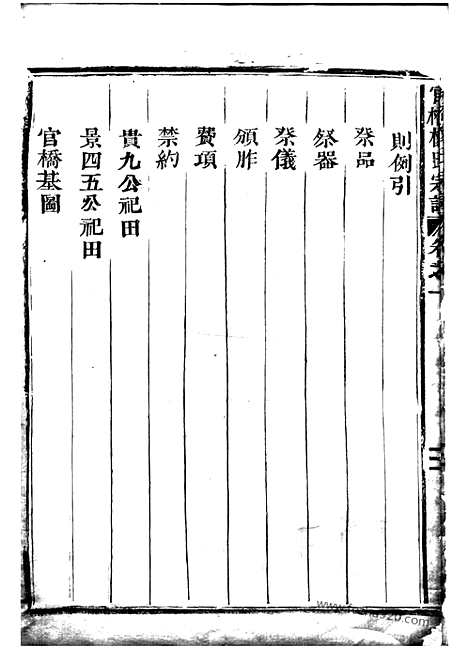 則例引
祭品
祭器
祭儀
頒胙
費項
禁約
貴九公祀田
景四五公祀田
官橋基圖